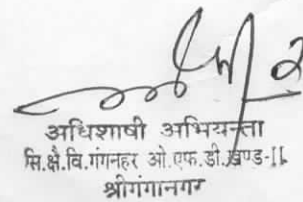 अधिशाषी अभियन्ता
सि.क्षै.वि.गंगनहर ओ.एफ.डी.खण्ड-II
श्रीगंगानगर